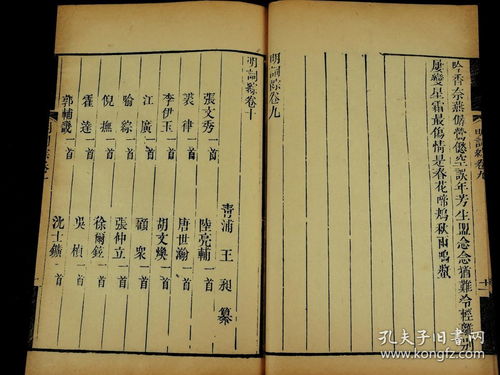 吟香奈燕僝鶯僽空誤年芳生盟念念猶難冷輕離別
屢變星霜最傷情是春花啼鴂秋雨鳴螿
明詞綜卷九
明詞綜卷九
十二
明詞綜卷十
青浦 王昶 纂
張文秀一首 陸亮輔一首
裘律一首 唐世瀚一首
李伊玉一首 胡文煥一首
江廣一首 顧衆一首
喻綜一首 張仲立一首
倪撫一首 徐爾鉉一首
霍達一首 吳楨一首
郭輔畿一首 沈士鑛一首
孔夫子旧书网
www.kongfz.com